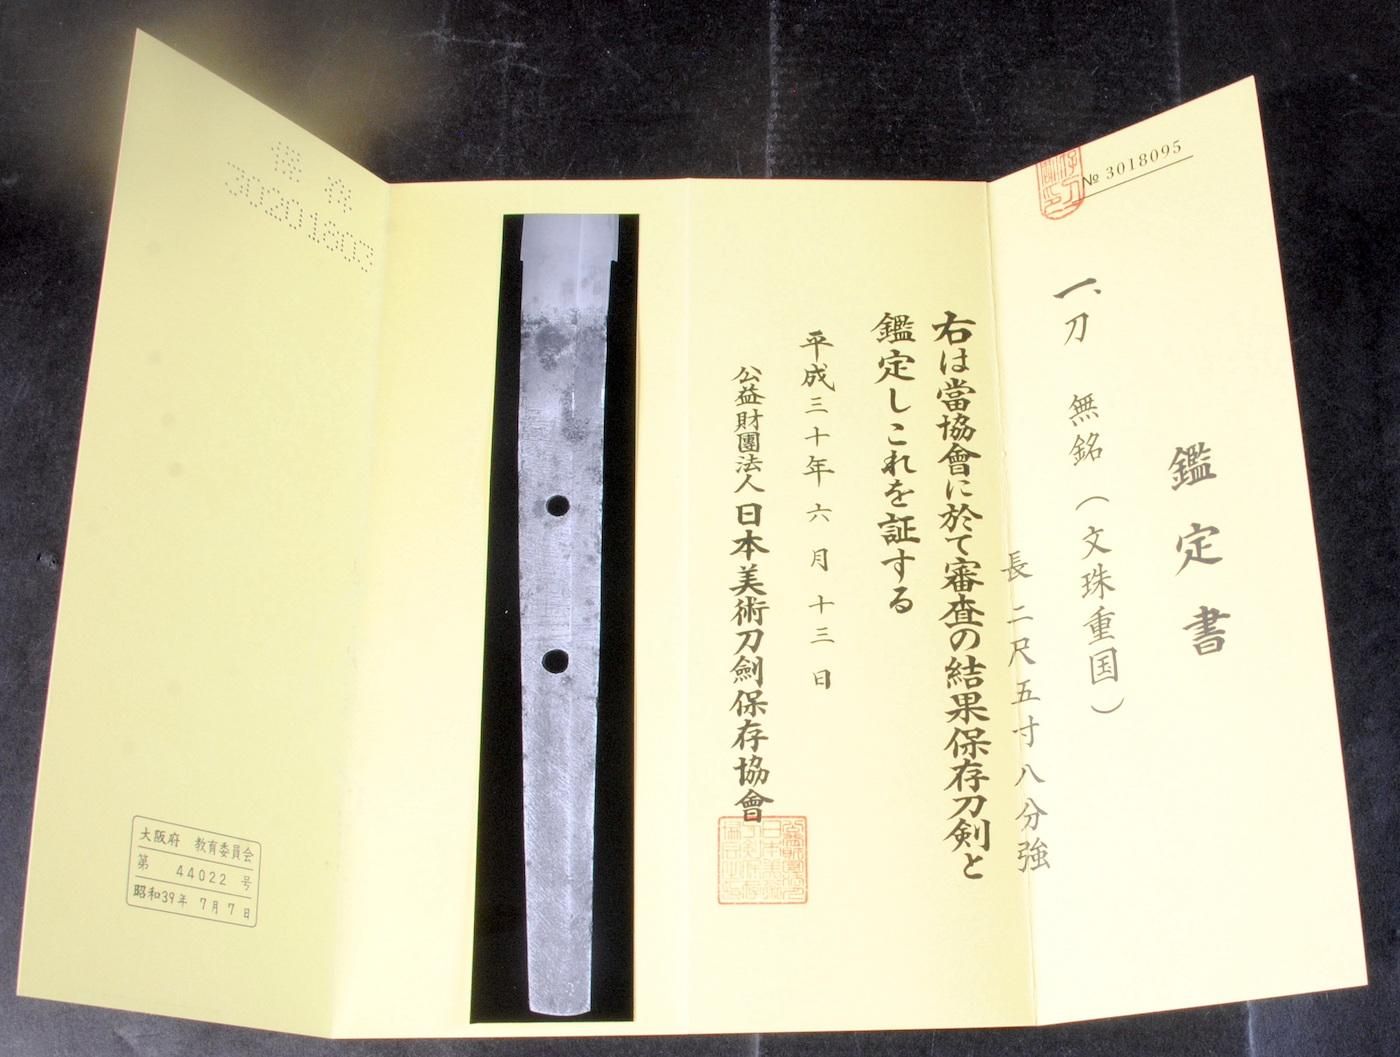 № 3018095
鑑定書
一、刀 無銘(文珠重国)
長二尺五寸八分強
右は當協會に於て審査の結果保存刀剣と
鑑定しこれを証する
平成三十年六月十三日
公益財團法人日本美術刀劍保存協會
30201803
大阪府 教育委員会
第 44022 号
昭和39年 7月 7日